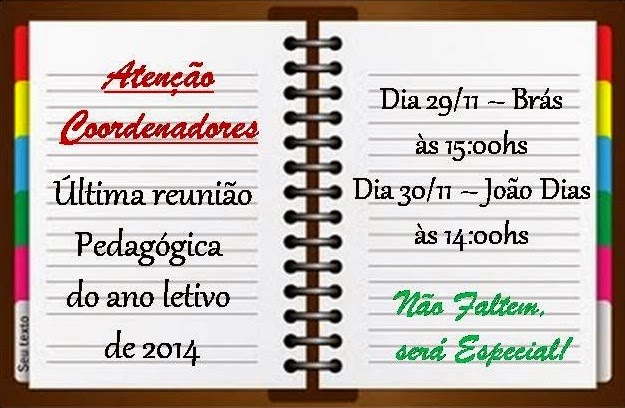 Atenção
Coordenadores
Última reunião
Pedagógica
do ano letivo
de 2014
Dia 29/11 – Brás
às 15:00hs
Dia 30/11 – João Dias
às 14:00hs
Não Faltem,
será Especial!
Seu texto